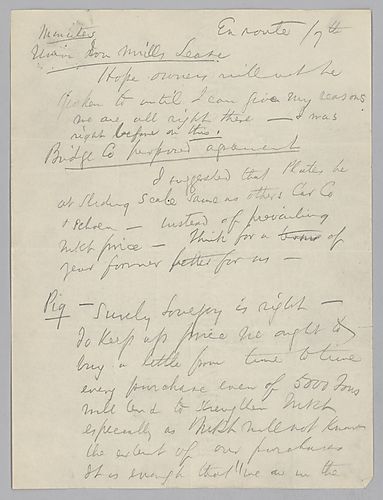 Minutes
En route / 7th
Union Iron Mills Lease
Hope owners will not be
spoken to until I can give my reasons
we are all right there — I was
right before on this.
Bridge Co proposed agreement
I suggested that Plates be
at Sliding Scale same as others Car Co
— instead of prevailing
Mkt price — think for a of
year former better for us —
Pig — Surely Lovejoy is right —
To keep up price we ought to
buy a little from time to time
every purchase even of 5000 Tons
will tend to strengthen Mkt
especially as Mkt will not know
the extent of our purchases
It is enough that "we are in the